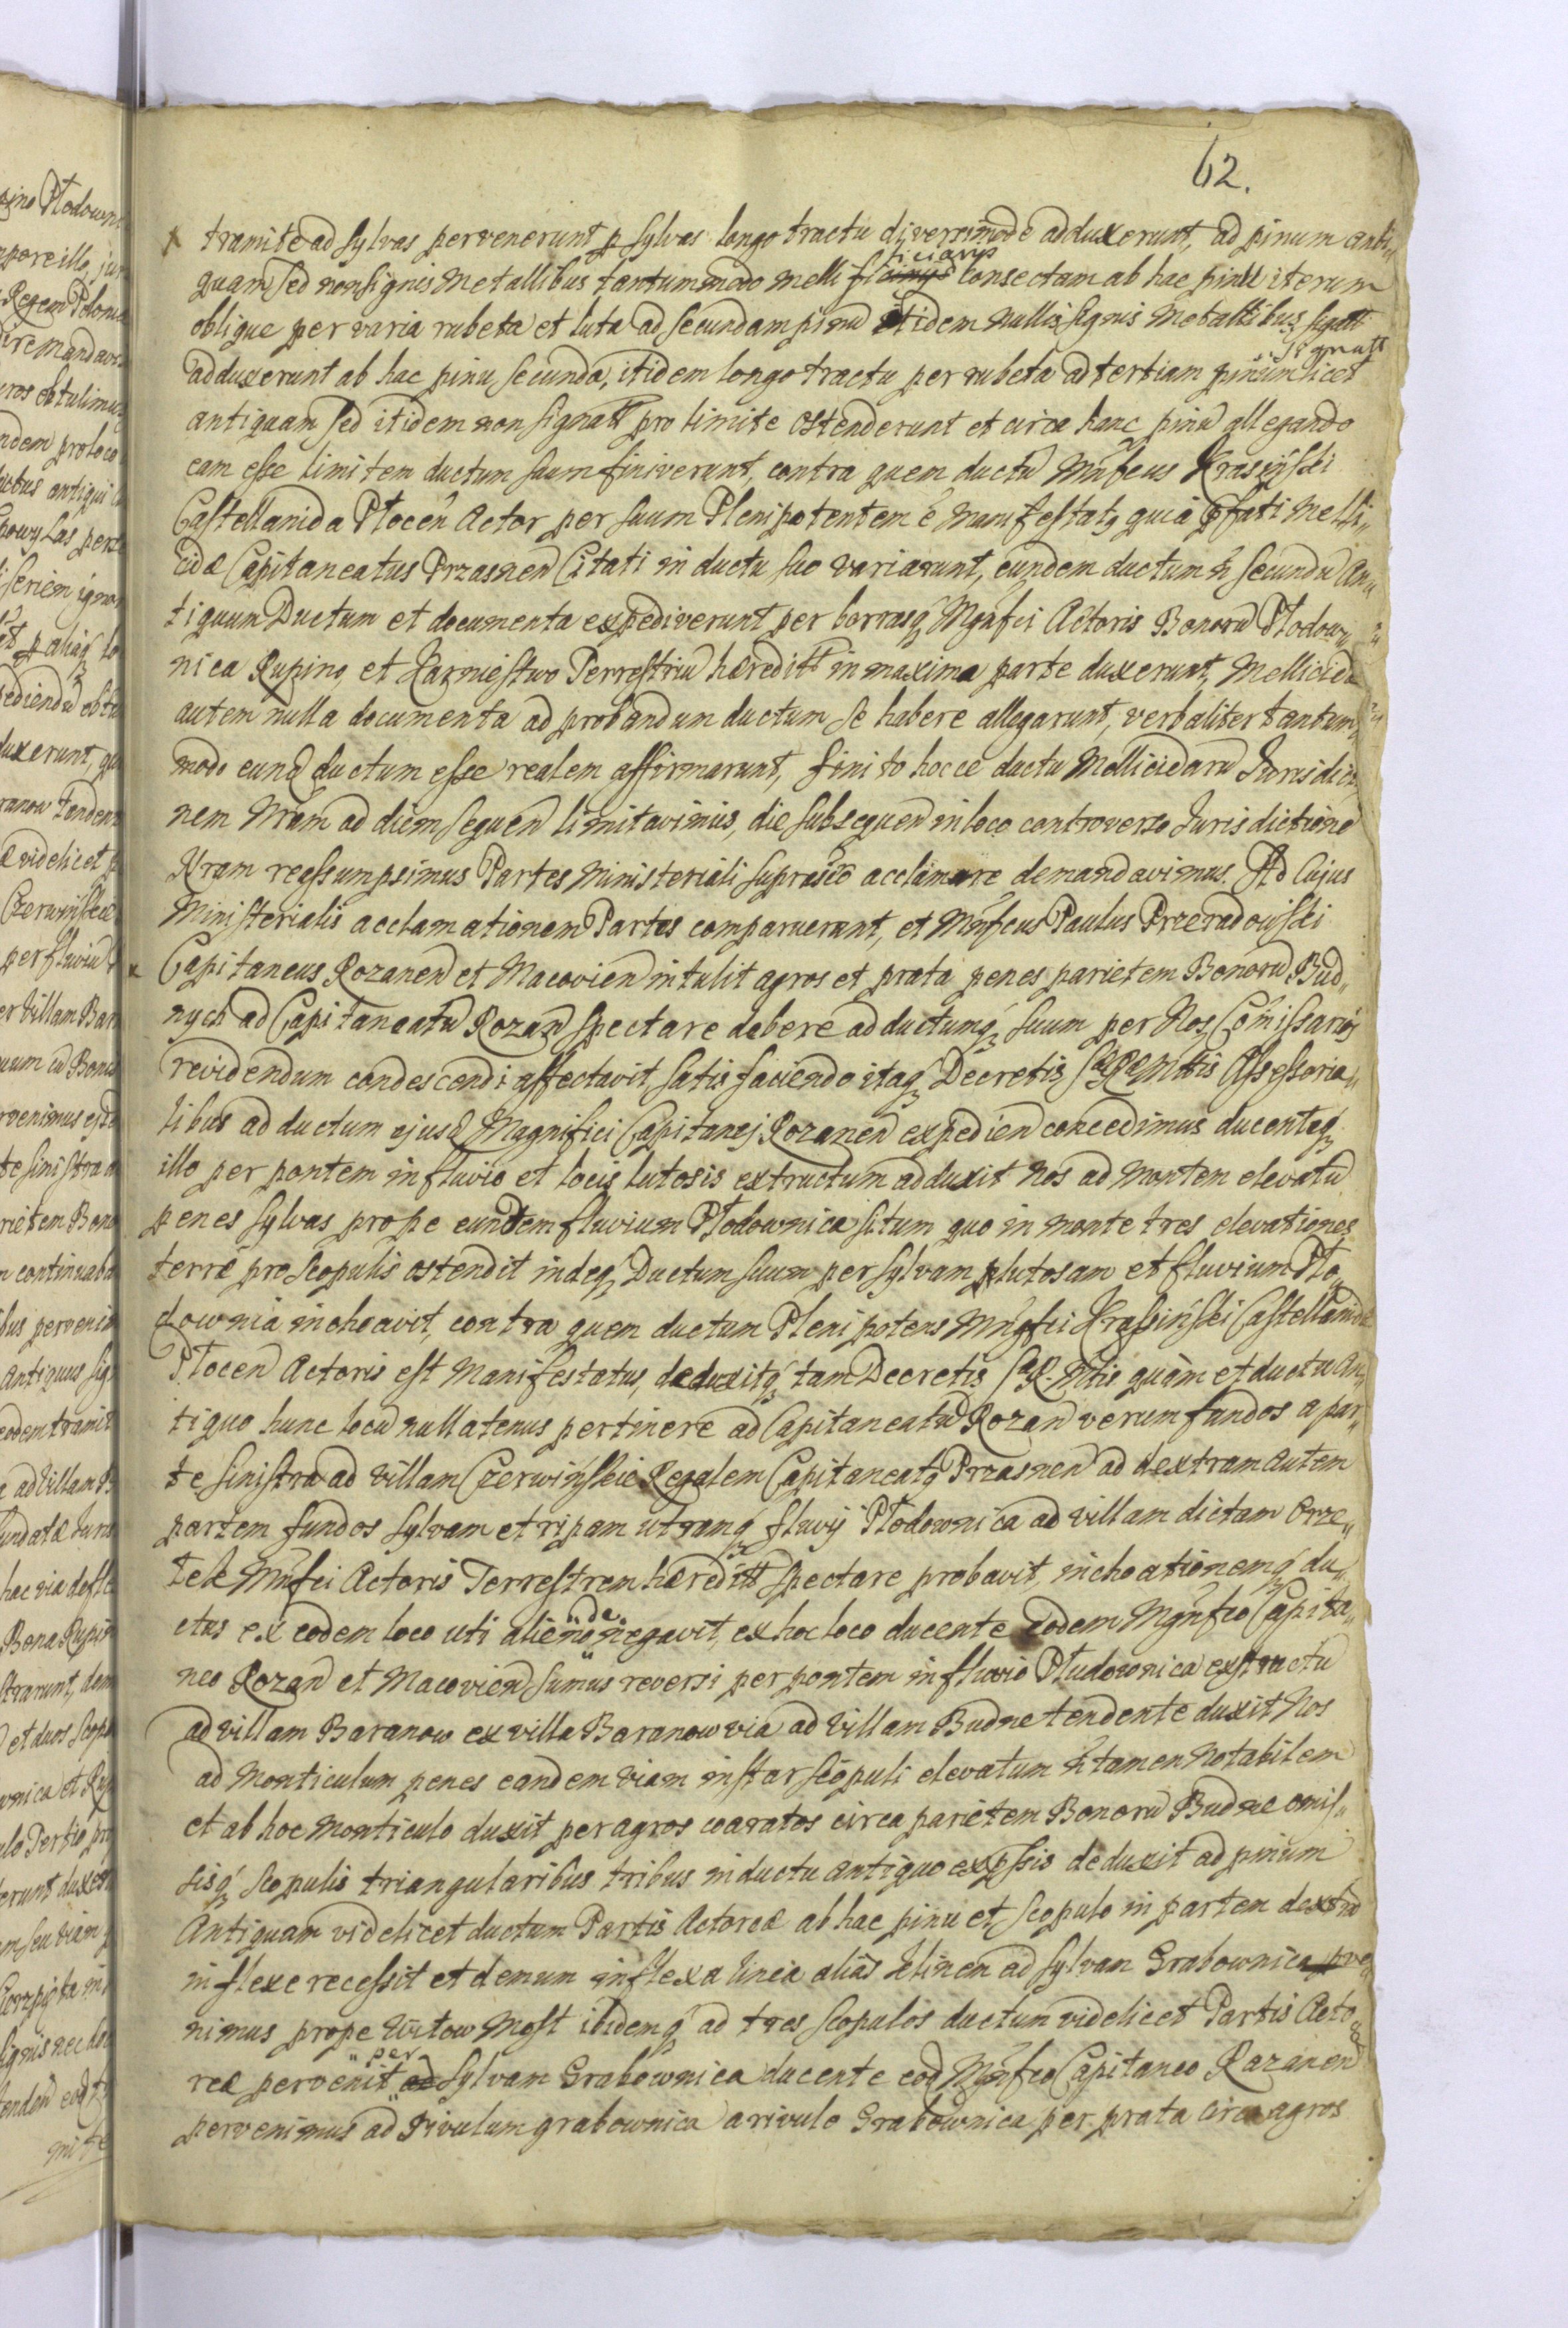 62.
tramite ad sylvas pervenerunt p sylvas longo tractu diversimode adduxerunt, ad pinum anti„
quam sed non signis Metallibus tantummodo melli ficiarijs consectam ab hac pinu iterum
oblique per varia rubeta et luta ad secundam pinu itidem nullis signis Metallibus signatt
adduxerunt ab hac pinu secunda, itidem longo tractu per rubeta ad tertiam pinum licet
antiquam sed itidem non signatt pro limite ostenderunt et circa hanc pinu allegando
eam esse limitem ductum suum finiverunt, contra quem ductu Mnfcus Krasiński
Castellanida Płocen Actor per suum Plenipotentem e manifestatg quia pfati Melli„
cidæ Capitaneatus Przasnen Citati in ductu suo variarunt, eundem ductum n secundu An„
tiquum Ductum et documenta expediverunt per borrasq Mgnfci Actoris Bonoru Płodow„
nica Rupino, et Kazmiestwo Terrestriu hæreditt in maxima parte duxerunt, Mellicidæ
autem nulla documenta ad probandum ductum se habere allegarunt, verbaliter tantum„
modo eund ductum esse realem affirmarunt, finito hocce ductu Mellicidaru Jurisdictio
nem Nram ad diem sequen limitavimus, die subsequen in loco controverso Jurisdictione
Nram reassumpsimus Partes Ministeriali suprascto acclamare demandavimus. Ad Cujus
Ministerialis acclamationem Partes comparuerunt, et Mnfcus Paulus Przeradowski
Capitaneus Rozanen et Macovien intulit agros et prata penes parietem Bonoru Bud„
nych ad Capitaneatu Rozan spectare debere ad ductumq suum per Nos Comissarios
revidendum condescendi affectavit, satisfaciendo itaq Decretis Sa R Mttis Assessoria„
libus ad ductum ejusd Magnifici Capitanej Rozanen expedien concedimus ducenteq
illo per pontem in fluvio et locis lutosis extructum adduxit nos ad Montem elevatu
penes sylvas prope eundem fluvium Płodownica situm quo in monte tres elevationes
terræ pro scopulis ostendit indeq Ductum suum per sylvam lutosam et fluvium Pło„
downia inchoavit, contra quem ductum Plenipotens Mngfci Krassiński Castellanidæ
Płocen Actoris est Manifestatus, deduxitq tam Decretis S R Mttis quàm et ductu An„
tiquo hunc locu nullatenus pertinere ad Capitaneatu Rozan verum fundos a par„
te sinistra ad villam Czerwińskie Regalem Capitaneatg Przasnen ad dextram autem
partem fundos sylvam et ripam utramq fluvij Płodownica ad villam dictam Orze„
łek Mnfci Actoris Terrestrem hæreditt spectare probavit, inchoationemq du„
ctus ex eodem loco uti alieno negavit, ex hoc loco ducente eodem Mgnfco Capita„
neo Rozan et Macovien sumus reversi per pontem in fluvio Płudownica exstructu
ad villam Baranow ex villa Baranow via ad villam Budne tendente duxit Nos
ad Monticulum penes eandem viam instar scopuli elevatum n tamen Notabilem
et ab hoc Monticulo duxit per agros coaratos circa parietem Bonoru Budne omis„
sisq scopulis triangularibus tribus in ductu antiquo expssis deduxit ad pinum
Antiquam videlicet ductum Partis Actoreæ ab hac pinu et scopulo in partem dextra
inflexe recessit et demum inflexa linea alias klinem ad sylvam Grabownica pve„
nimus prope Witow Most ibidemq ad tres scopulos ductum videlicet Partis Acto„
reæ pervenit per sylvam Grabownica ducente eod Mgnfco Capitaneo Rozanen
pervenimus ad Rivulum grabownica a rivulo Grabownica per prata circa agros